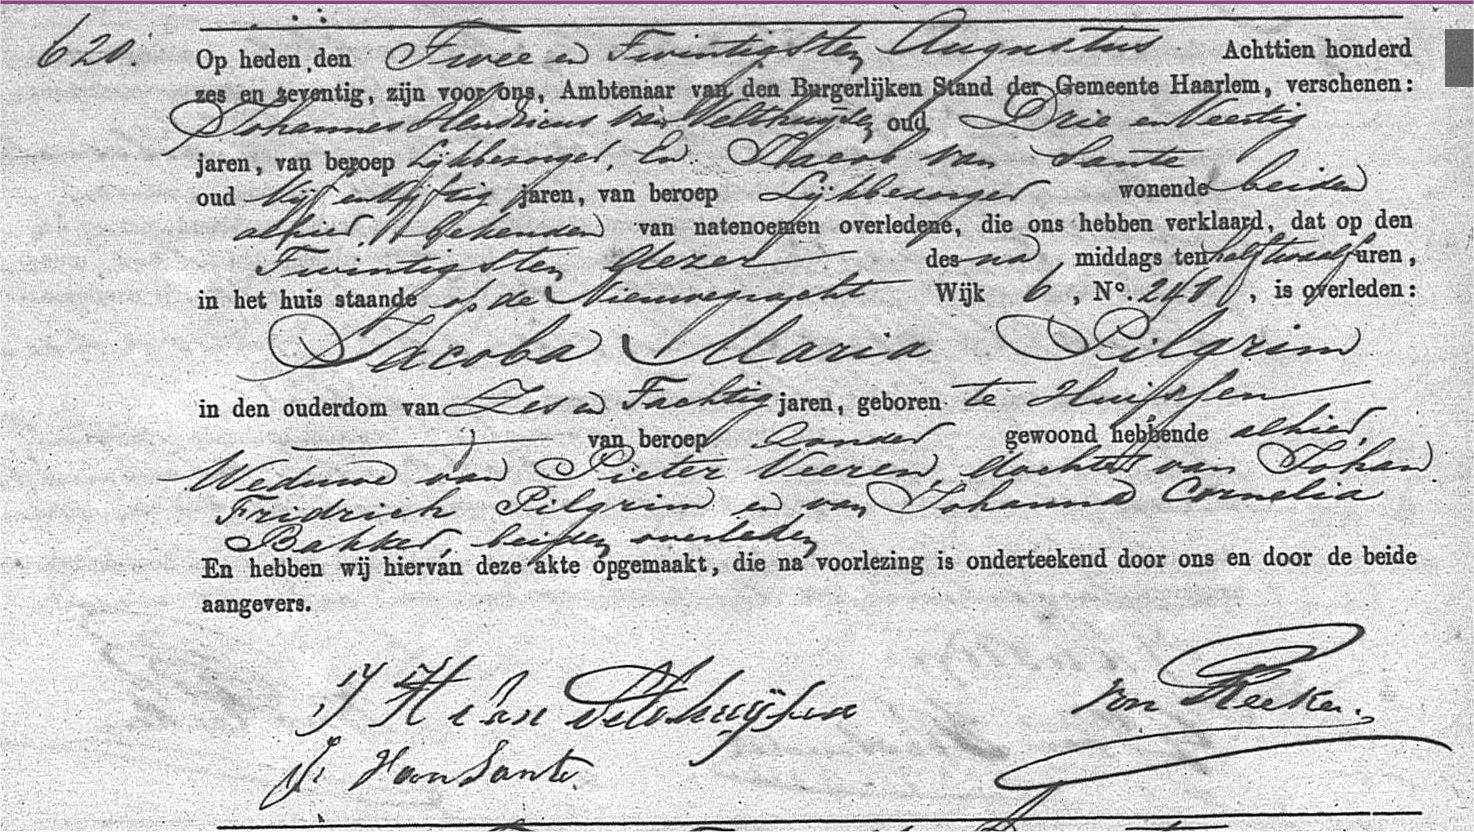 620.
Op heden den Twee en Twintigsten Augustus Achttien honderd
zes en zeventig, zijn voor ons, Ambtenaar van den Burgerlijken Stand der Gemeente Haarlem, verschenen:
Johannes Hendricus van Velthuijsen oud Drie en Veertig
jaren, van beroep Lijkbezorger, En Jacob van Sante
oud vijf en vijftig jaren, van beroep Lijkbezorger wonende beiden
alhier, bekenden van natenoemen overledene, die ons hebben verklaard, dat op den
Twintigsten dezer des na middags ten half twaalf uren,
in het huis staande op de Nieuwegracht Wijk 6, No. 248, is overleden:
Jacoba Maria Pilgrim
in den ouderdom van Zes en Tachtig jaren, geboren te Huissen
van beroep zonder gewoond hebbende alhier,
Weduwe van Pieter Veeren, dochter van Johan
Fridrich Pilgrim en van Johanna Cornelia
Bakker, beiden overleden
En hebben wij hiervan deze akte opgemaakt, die na voorlezing is onderteekend door ons en door de beide
aangevers.
J H van Velthuijsen
J. van Sante.